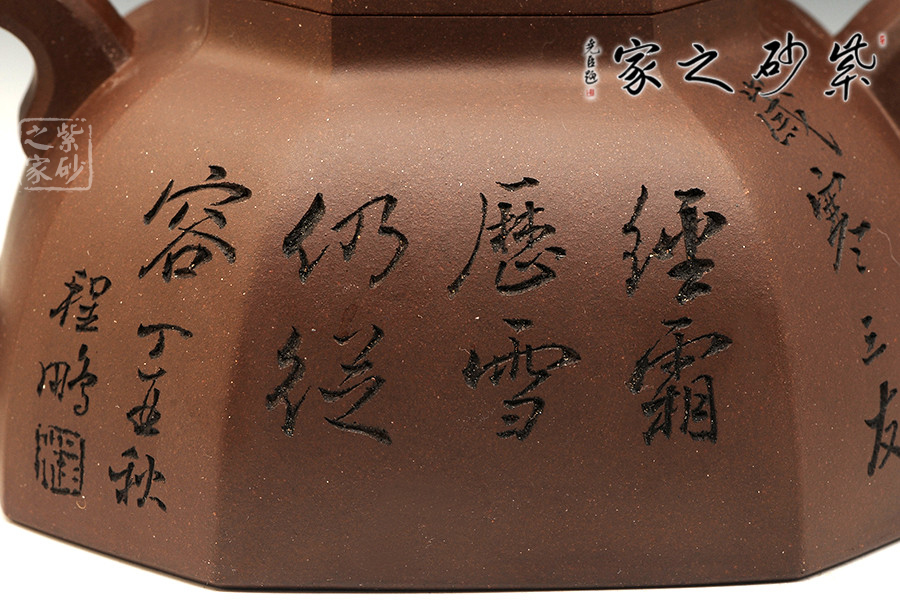 紫砂之家
紫砂
之家
歲寒三友
經霜
歷雪
仍從
容 丁丑秋
程鵬